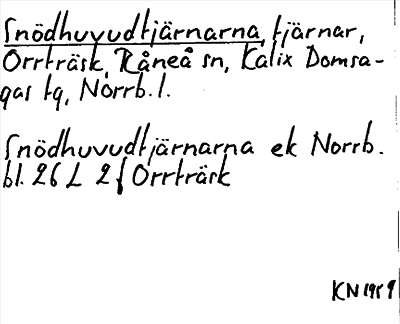 Snödhuvudtjärnarna, tjärnar,
Orrträsk, Råneå sn, Kalix Domsa-
gas tg, Norrb. l.
Snödhuvudtjärnarna ek Norrb.
bl. 26 L 2 f Orrträsk
KN 1959